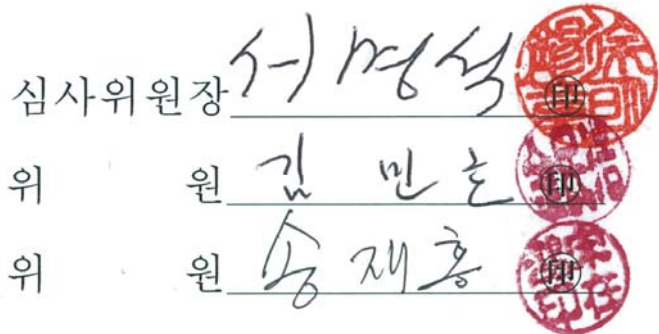 심사위원장 서명석 ㊞
위 원 김민호 ㊞
위 원 송재홍 ㊞